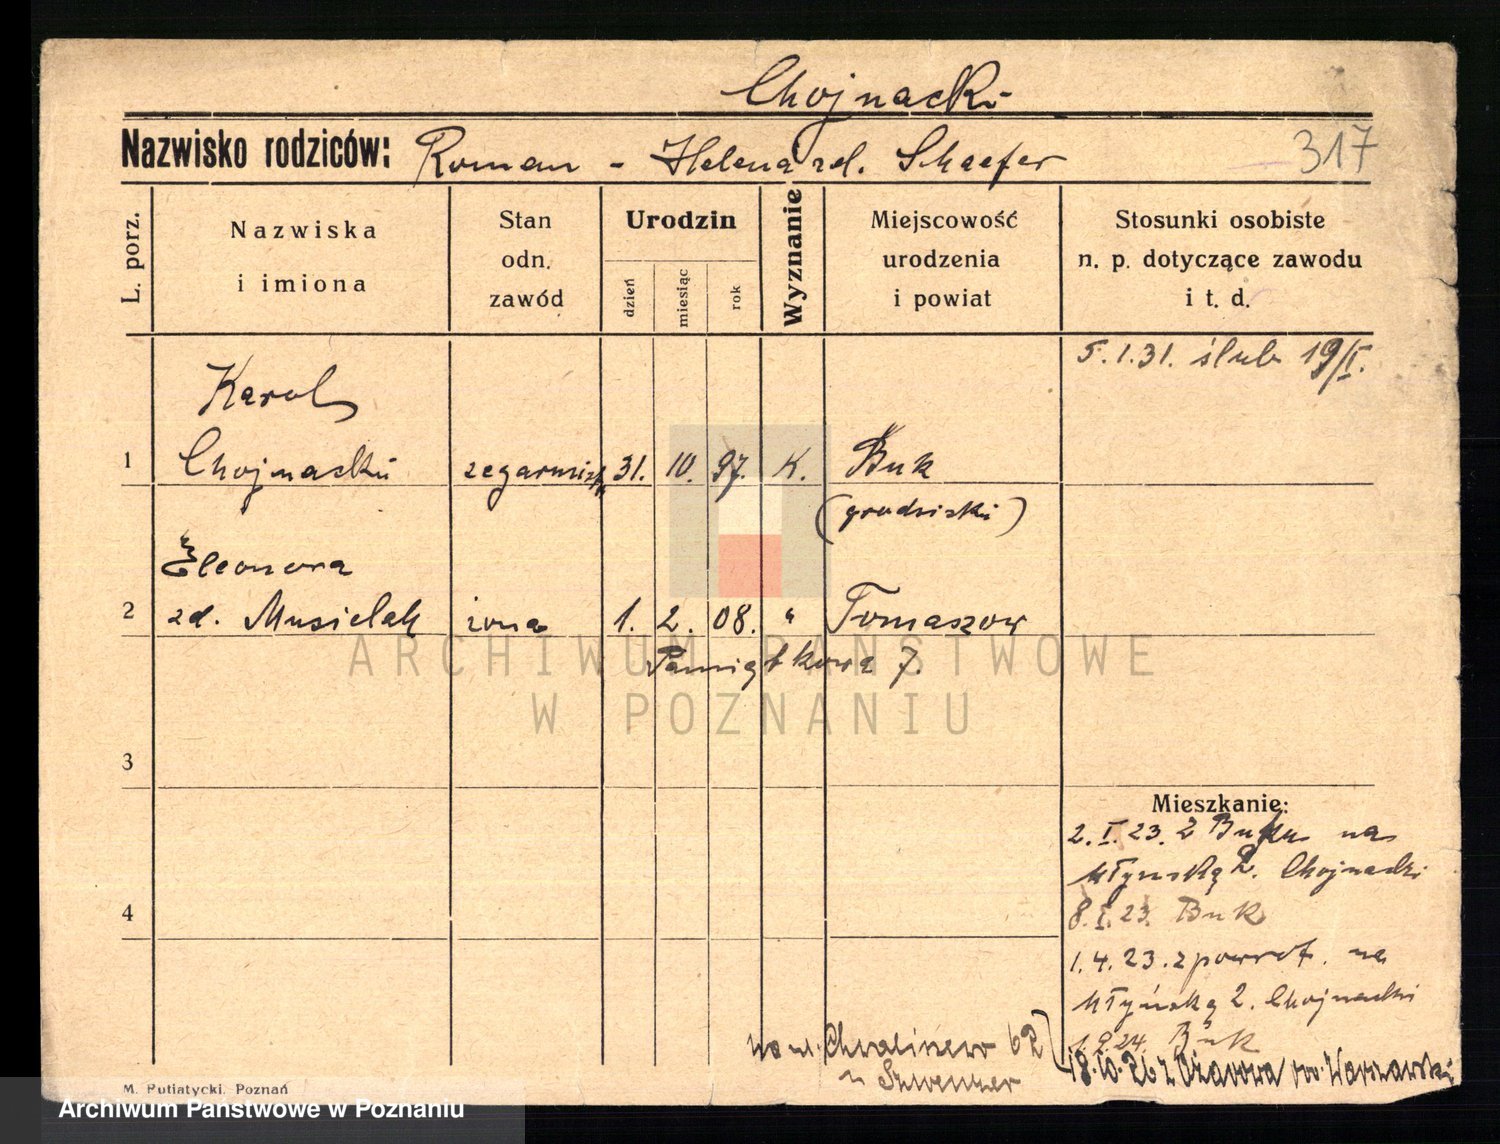 Chojnacki
Nazwisko rodziców: Roman - Helena zd. Schaefer
317
L. porz.
Nazwiska
i imiona
Stan
odn.
zawód
Urodzin
dzień
miesiąc
rok
Wyznanie
Miejscowość
urodzenia
i powiat
Stosunki osobiste
n. p. dotyczące zawodu
i t. d.
5.1.31. ślub 19/I.
Karol
1 Chojnacki zegarmistrz 31. 10. 97. K. Buk
(grodziski)
Eleonora
2 zd. Musielak żona 1. 2. 08. " Tomaszow
Pamiątkowa 7.
ARCHIWUM PAŃSTWOWE
W POZNANIU
3
Mieszkanie:
2.I.23. z Buku na
Młyńską 2. Chojnacki
4
8.I.23. Buk
1.4.23. z powrot. na
Młyńską 2. Chojnacki
1.9.24. Buk
18.10.26 z Ożarowa pow. Warszawski
na ul.
62
M. Putiatycki, Poznań
Archiwum Państwowe w Poznaniu